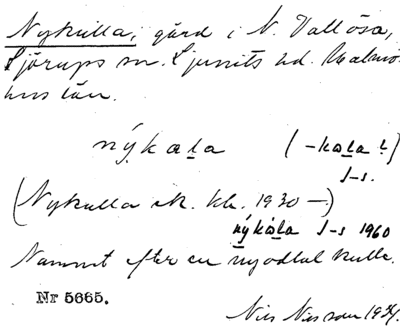 Nykulla, gård i N. Vallösa,
Sjörups sn. Ljunits hd. Malmö-
hus län.
nýkala (-kala ?)
J-s.
(Nykulla ek. kb. 1930 —)
nýkala J-s 1960
Namnet efter en nyodlad kulle.
Nr 5665.
Nils Nilsson